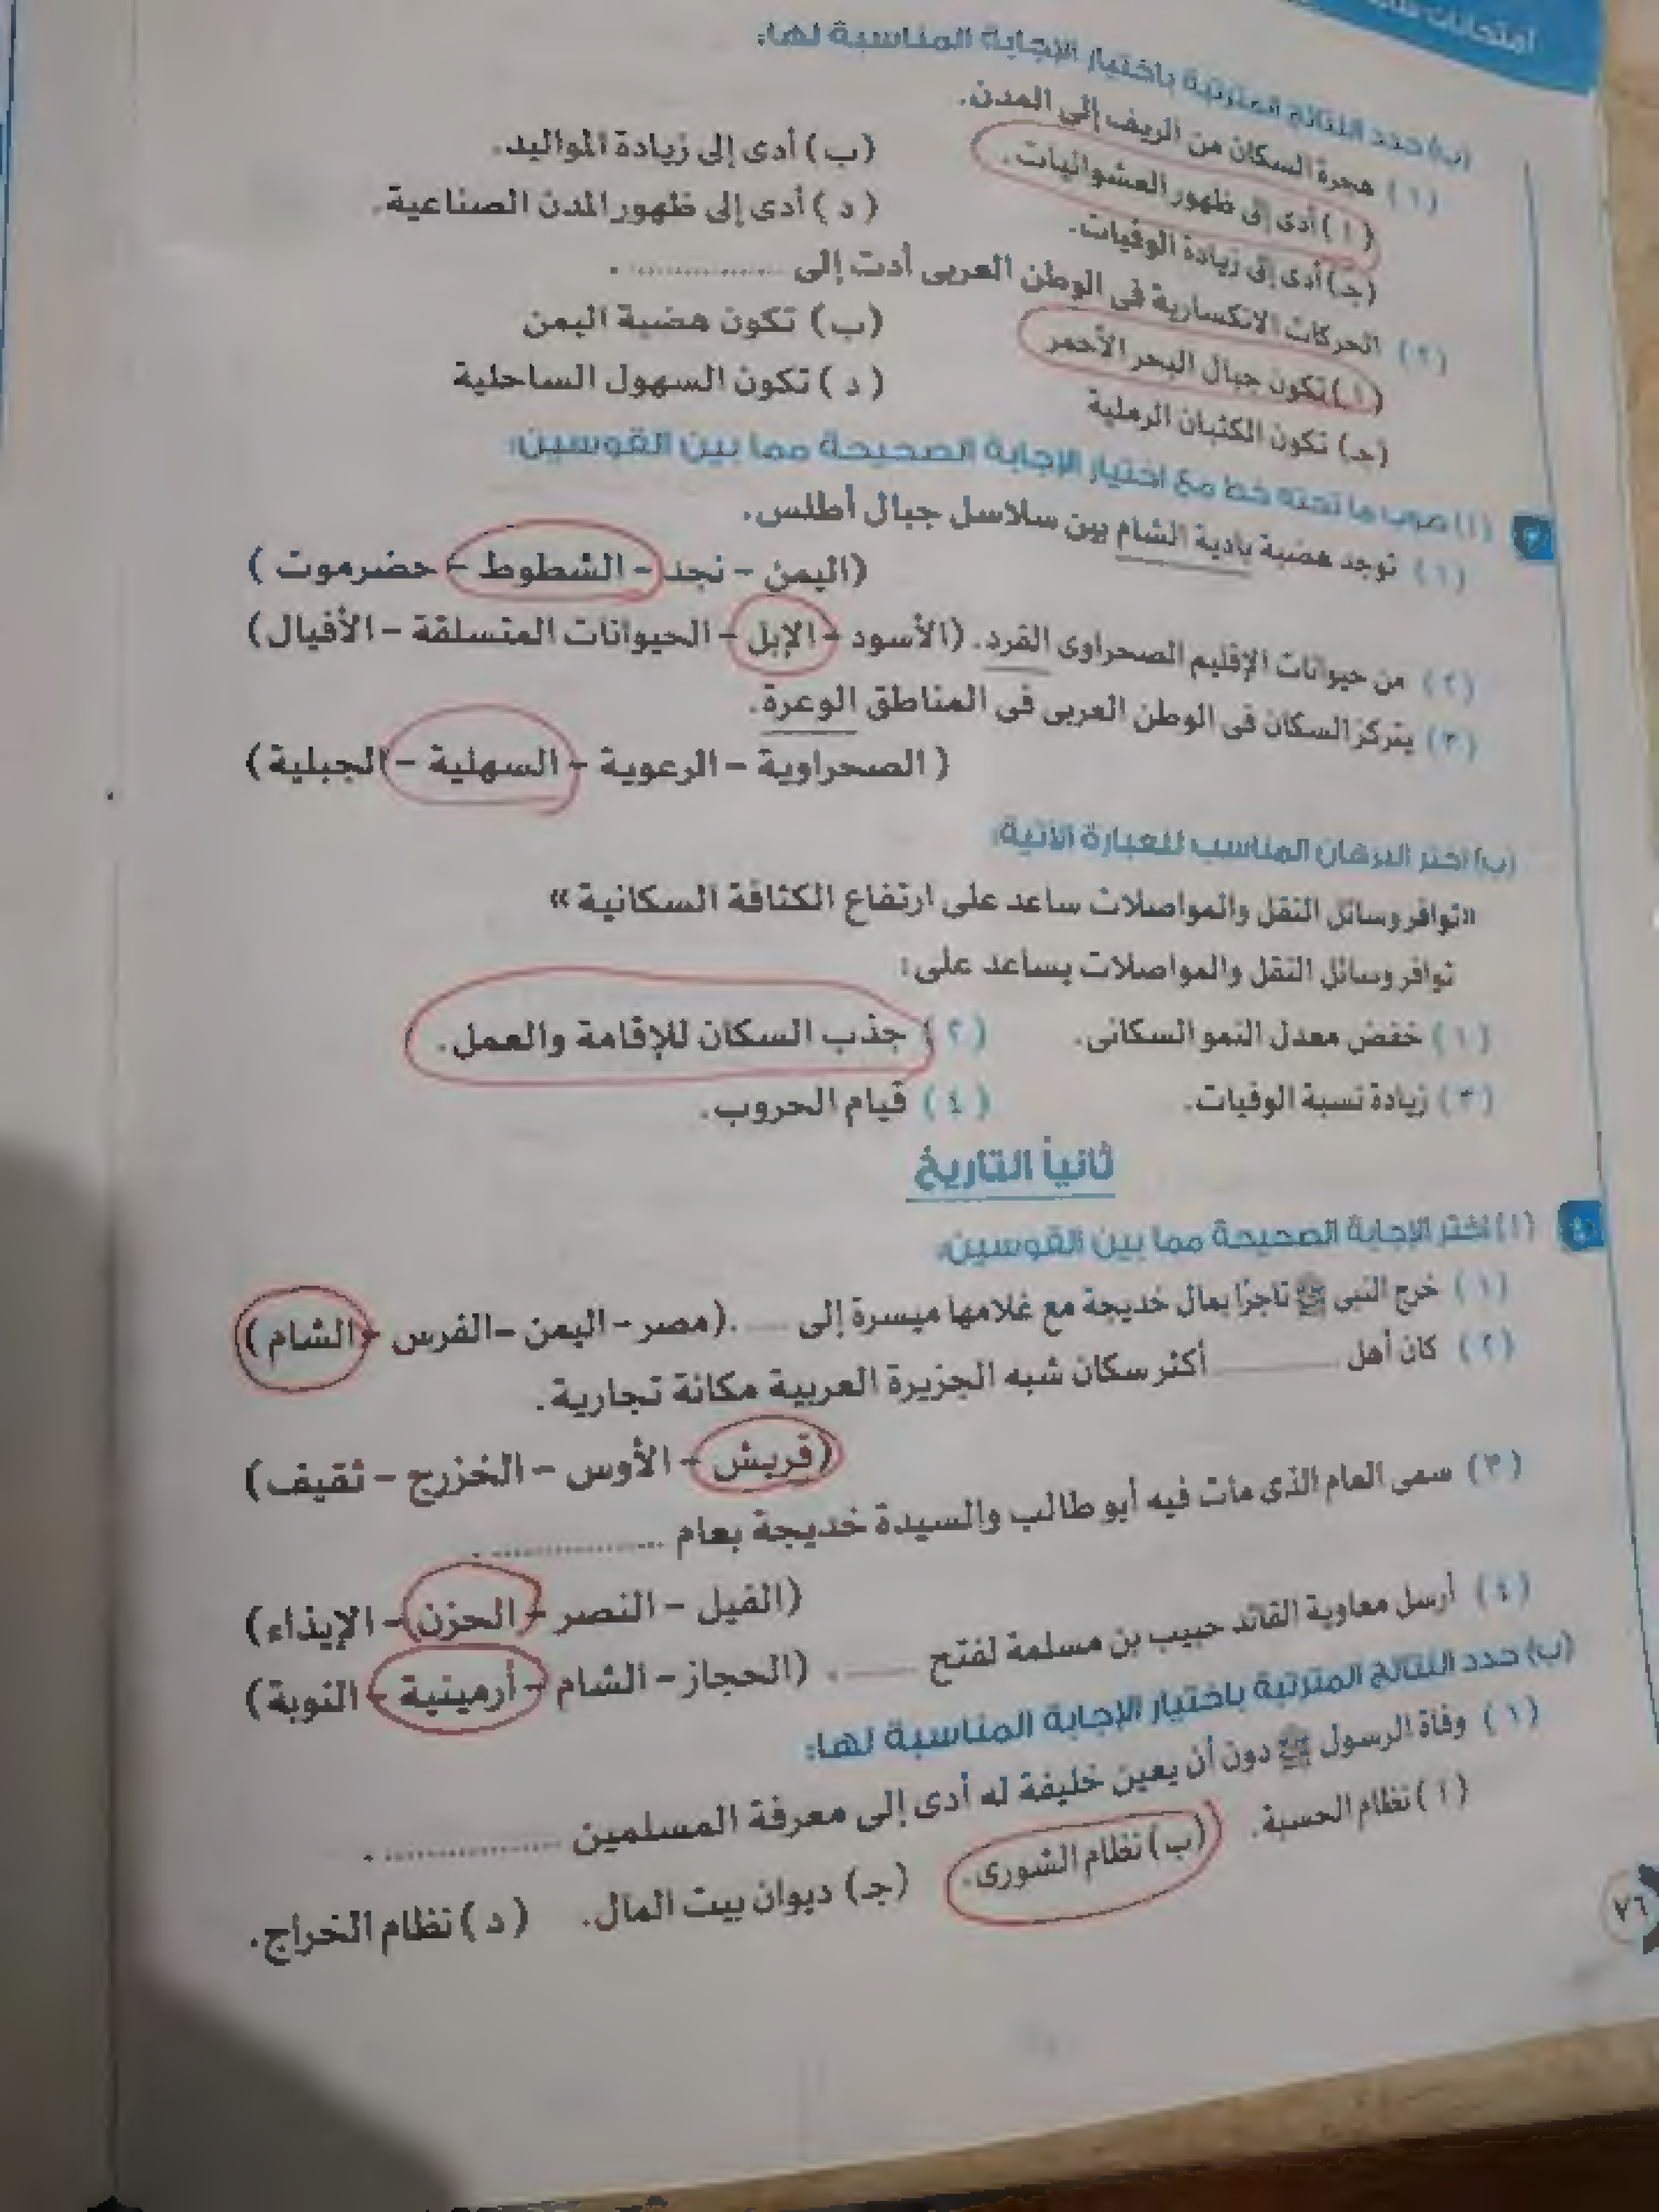 امتحانات
(ب) حدد النتائج المترتبة باختيار الإجابة المناسبة لها:
(١) هجرة السكان من الريف إلى المدن.
(أ) أدى إلى ظهور العشوائيات. (ب) أدى إلى زيادة المواليد.
(جـ) أدى إلى زيادة الوفيات. (د) أدى إلى ظهور المدن الصناعية.
(٢) الحركات الانكسارية فى الوطن العربى أدت إلى ................ .
(أ) تكون جبال البحر الأحمر (ب) تكون هضبة اليمن
(جـ) تكون الكثبان الرملية (د) تكون السهول الساحلية
(أ) صوب ما تحته خط مع اختيار الإجابة الصحيحة مما بين القوسين:
(١) توجد هضبة بادية الشام بين سلاسل جبال أطلس.
(اليمن - نجد - الشطوط - حضرموت)
(٢) من حيوانات الإقليم الصحراوى القرد. (الأسود - الإبل - الحيوانات المتسلقة - الأفيال)
(٣) يتركز السكان فى الوطن العربى فى المناطق الوعرة.
(الصحراوية - الرعوية - السهلية - الجبلية)
(ب) اختر البرهان المناسب للعبارة الآتية:
«توافر وسائل النقل والمواصلات ساعد على ارتفاع الكثافة السكانية»
توافر وسائل النقل والمواصلات يساعد على:
(١) خفض معدل النمو السكانى. (٢) جذب السكان للإقامة والعمل.
(٣) زيادة نسبة الوفيات. (٤) قيام الحروب.
ثانياً التاريخ
(أ) اختر الإجابة الصحيحة مما بين القوسين:
(١) خرج النبى ﷺ تاجرًا بمال خديجة مع غلامها ميسرة إلى ...... . (مصر - اليمن - الفرس - الشام)
(٢) كان أهل ................ أكثر سكان شبه الجزيرة العربية مكانة تجارية.
(قريش - الأوس - الخزرج - ثقيف)
(٣) سمى العام الذى مات فيه أبو طالب والسيدة خديجة بعام .................... .
(الفيل - النصر - الحزن - الإيذاء)
(٤) أرسل معاوية القائد حبيب بن مسلمة لفتح ........ . (الحجاز - الشام - أرمينية - النوبة)
(ب) حدد النتائج المترتبة باختيار الإجابة المناسبة لها:
(١) وفاة الرسول ﷺ دون أن يعين خليفة له أدى إلى معرفة المسلمين .................... .
(أ) نظام الحسبة. (ب) نظام الشورى. (جـ) ديوان بيت المال. (د) نظام الخراج.
٧٦